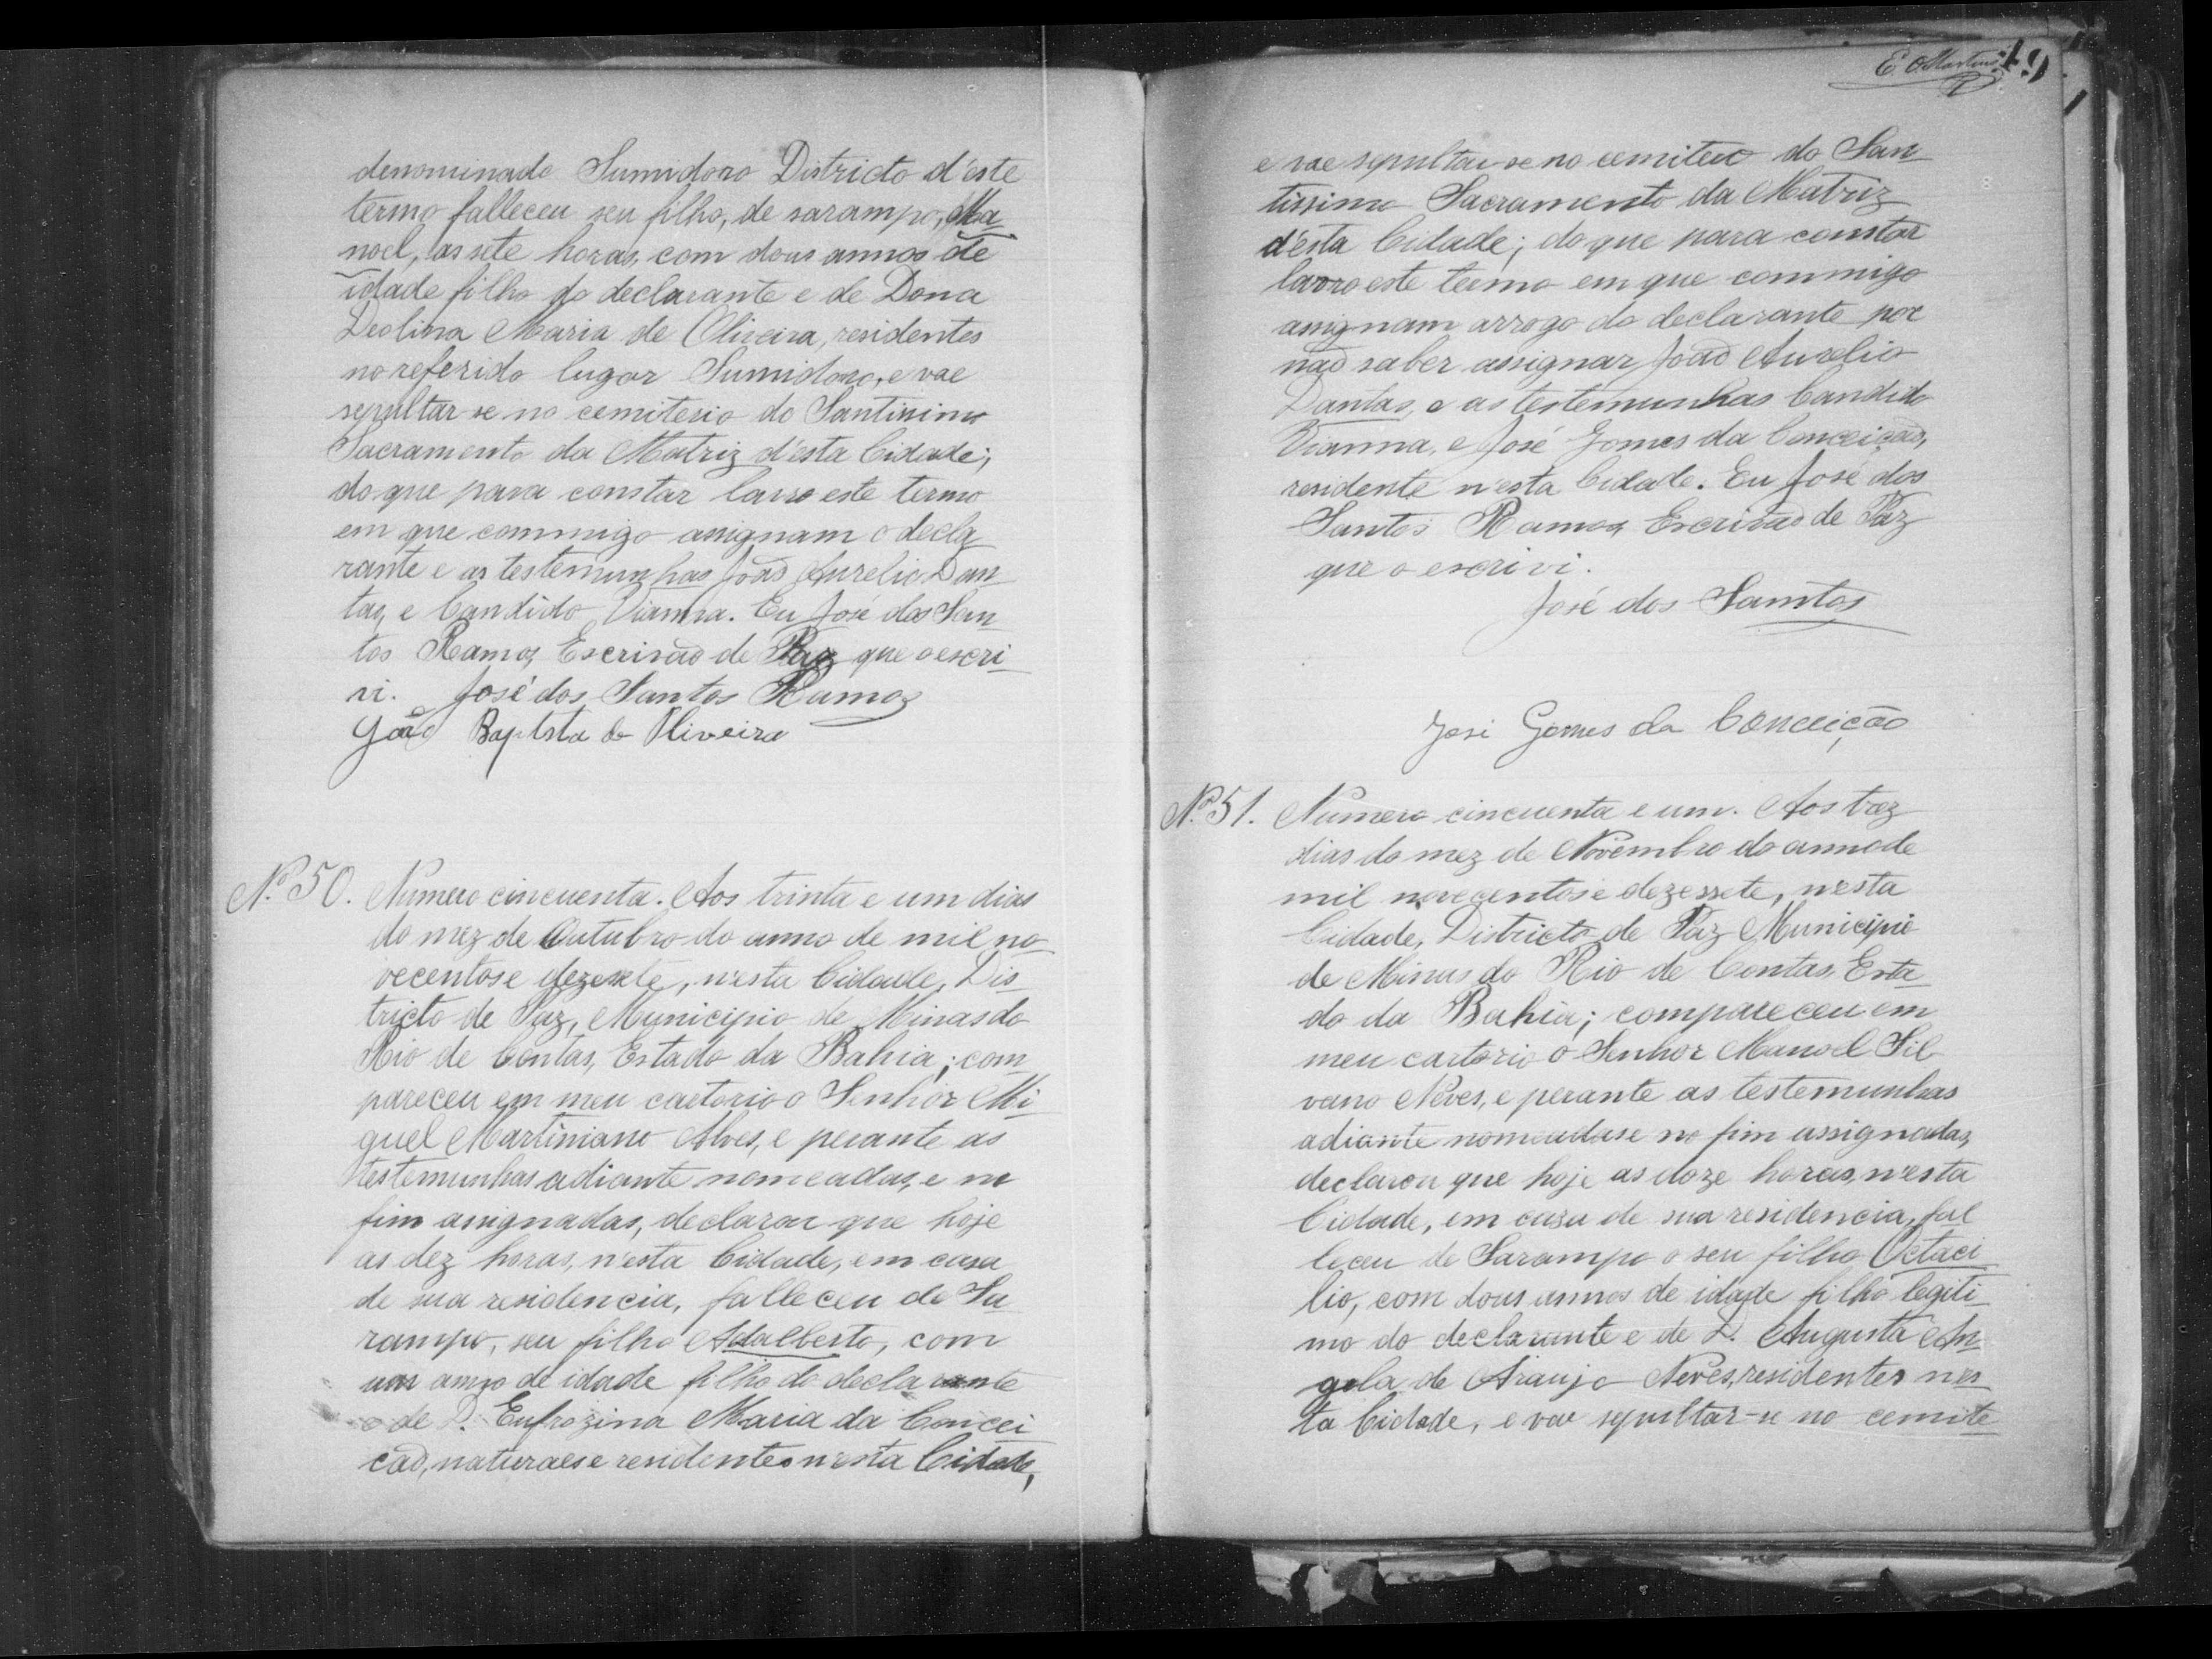 denominado Sumidoro Districto d'este
termo falleceu seu filho, de sarampo, Ma
noel, as sete horas, com dous annos de
idade filho do declarante e de Dona
Deolina Maria de Oliveira, residentes
no referido lugar Sumidoro, e vae
sepultar-se no cemiterio do Santissimo
Sacramento da Matriz d'esta Cidade;
do que para constar lavro este termo
em que commigo assignam o decla
rante e as testemunhas João Aurelio Dan
tas, e Candido Vianna. Eu José dos San
tos Ramos, Escrivão de Paz que o escri
vi. José dos Santos Ramos
João Baptsta de Oliveira
Nº 50. Numero cincuenta. Aos trinta e um dias
do mez de Outubro do anno de mil no
vecentos e dezesete, n'esta Cidade, Dis
tricto de Paz, Municipio de Minas do
Rio de Contas, Estado da Bahia; com
pareceu em meu cartorio o Senhor Mi
guel Martiniano Alves, e perante as
testemunhas adiante nomeadas, e no
fim assignadas, declarou que hoje
as dez horas, n'esta Cidade, em casa
de sua residencia, falleceu de Sa
rampo, seu filho Adalberto, com
um anno de idade filho do declarante
e de D. Eufrozina Maria da Concei
cão, naturaes e residentes n'esta Cidade,
E. O. Martins 49
e vae sepultar-se no cemiterio do San
tissimo Sacramento da Matriz
d'esta Cidade; do que para constar
lavro este termo em que commigo
assignam arrogo do declarante por
não saber assignar João Aurelio
Dantas, e as testemunhas Candido
Vianna, e José Gomes da Conceição,
residente n'esta Cidade. Eu José dos
Santos Ramos, Escrivão de Paz
que o escrivi.
José dos Santos
José Gomes da Conceição
Nº 51. Numero cincuenta e um. Aos trez
dias do mez de Novembro do anno de
mil novecentos e dezessete, n'esta
Cidade, Districto de Paz Municipio
de Minas do Rio de Contas, Esta
do da Bahia; compareceu em
meu cartorio o Senhor Manoel Sil
vano Neves, e perante as testemunhas
adiante nomeadas e no fim assignadas,
declarou que hoje as doze horas, n'esta
Cidade, em casa de sua residencia, fal
leceu de Sarampo o seu filho Octaci
lio, com dous annos de idade filho legiti
mo do declarante e de D. Augusta An
gela de Araujo Neves, residentes nes
ta Cidade, e vae sepultar-se no cemite